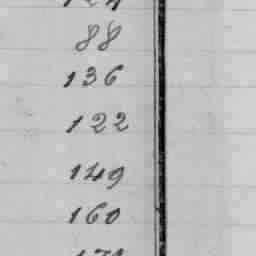 88
136
122
149
160